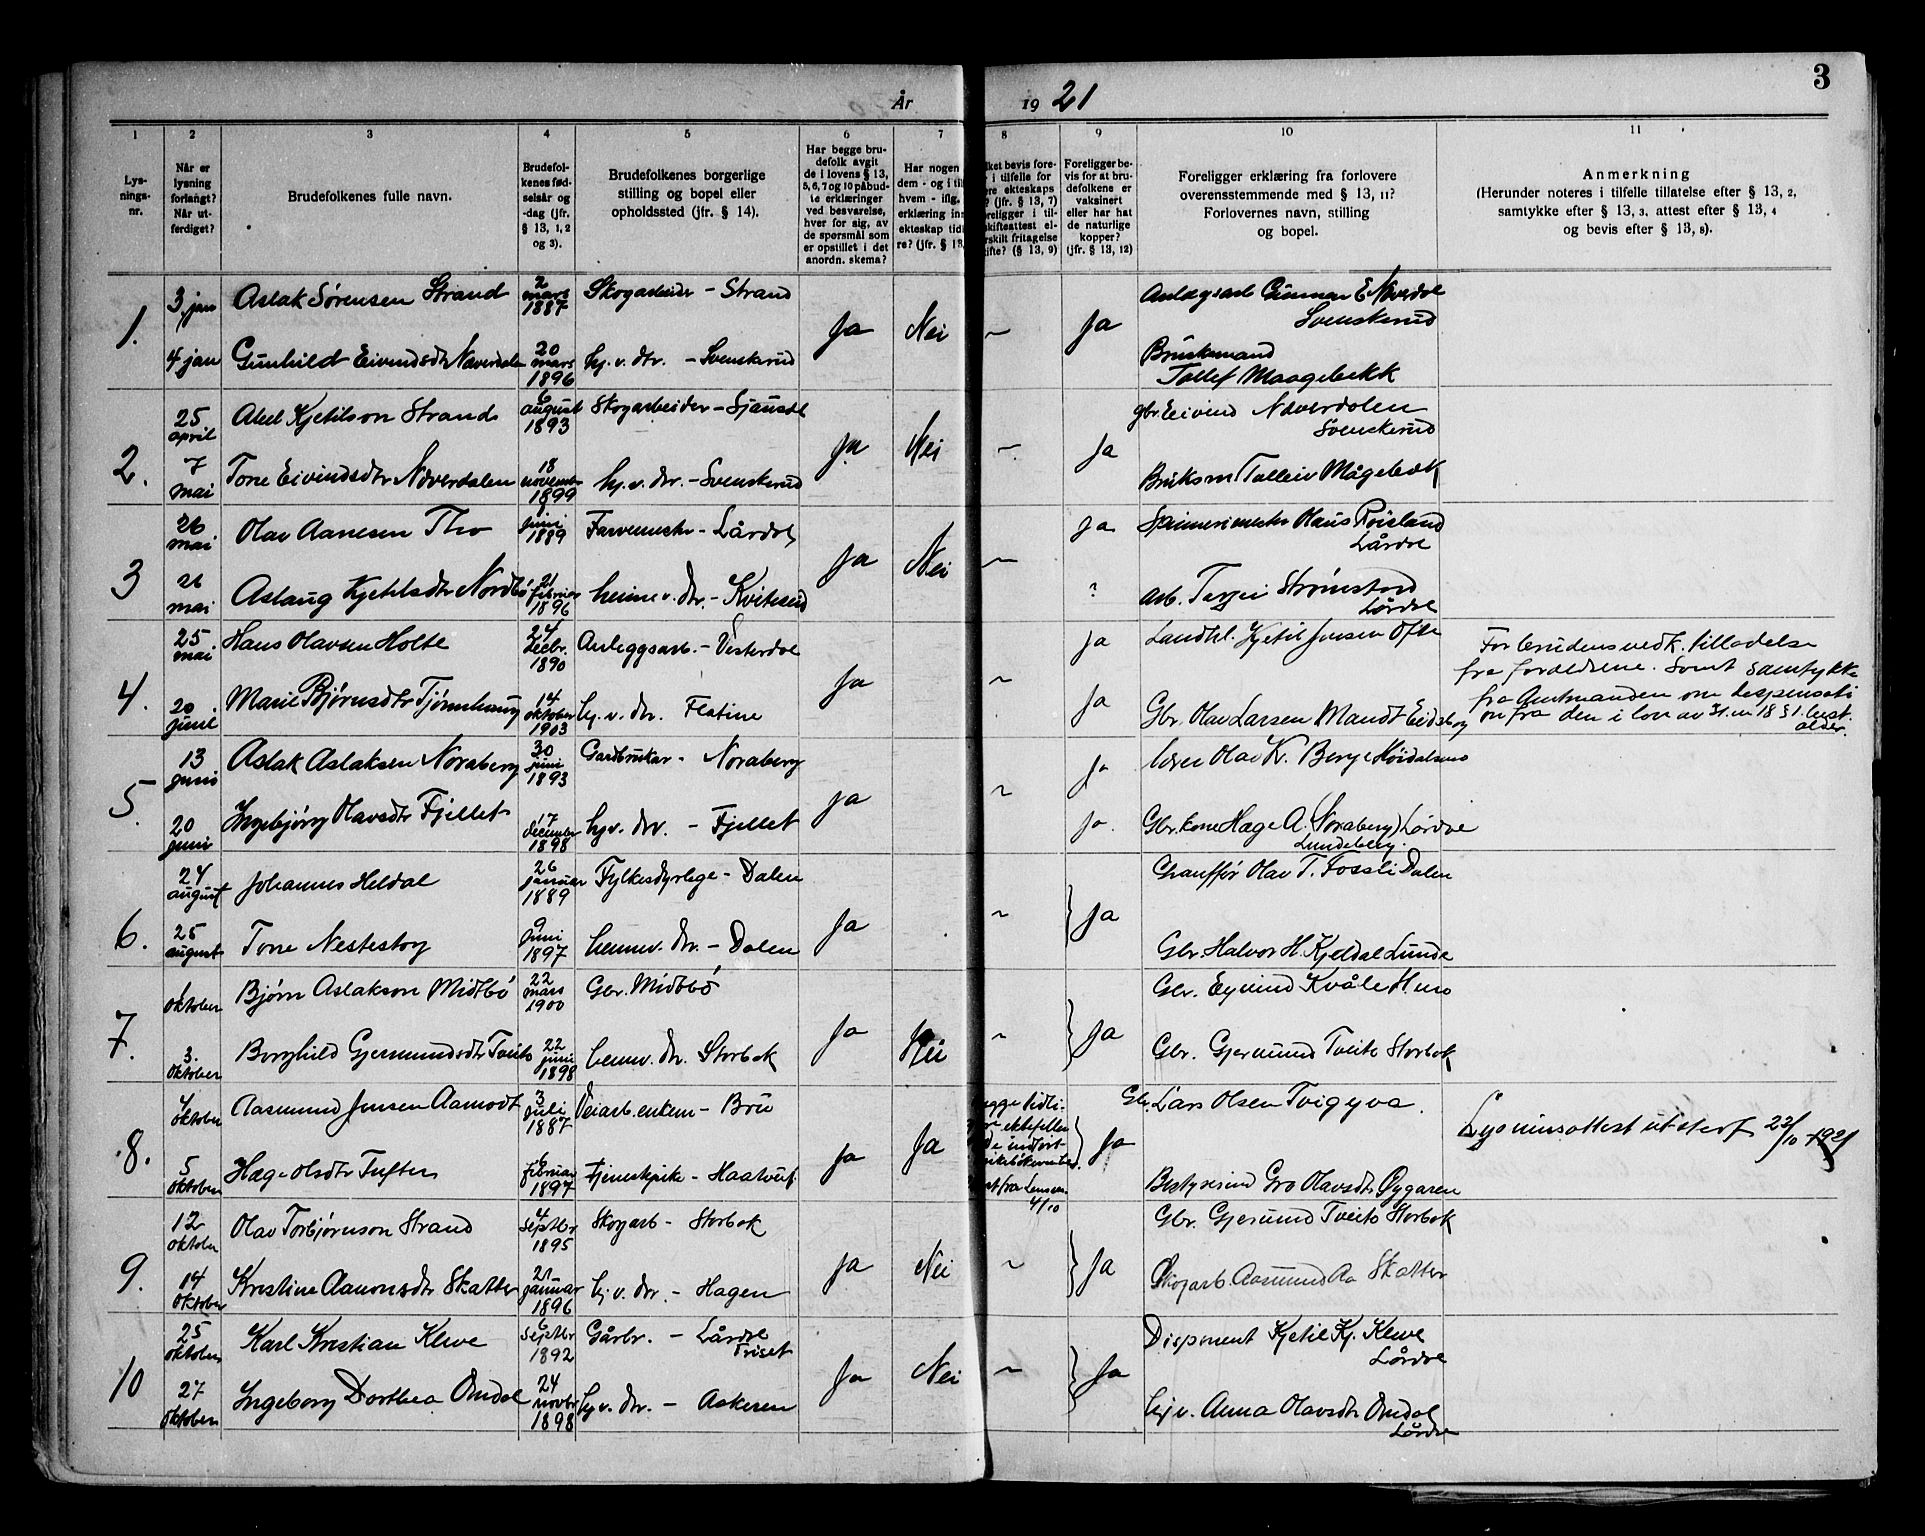 År 1921
3
1 2 3 4 5 6 7 8 9 10 11
Lys-
nings-
nr.
Når er
lysning
forlangt?
Når ut-
ferdiget?
Brudefolkenes fulle navn.
Brudefol-
kenes fød-
selsår og
-dag (jfr.
§ 13, 1, 2
og 3).
Brudefolkenes borgerlige
stilling og bopel eller
opholdssted (jfr. § 14).
Har begge bru-
defolk avgit
de i lovens § 13,
5, 6, 7 og 10 påbud-
te erklæringer
ved besvarelse,
hver for sig, av
de spørsmål som
er opstillet i det
anordn. skema?
Har nogen
dem - og i til
hvem - iflg.
erklæring inn
ekteskap tid
re? (jfr. § 13,
lket bevis fore-
- i tilfelle for
re ekteskaps
? (jfr. § 13, 7)
religger i til-
skifteattest el-
rskilt fritagelse
ifte? (§ 13, 9)
Foreligger be-
vis for at bru-
defolkene er
vaksinert
eller har hat
de naturlige
kopper?
(jfr. § 13, 12)
Foreligger erklæring fra forlovere
overensstemmende med § 13, 11?
Forlovernes navn, stilling
og bopel.
Anmerkning
(Herunder noteres i tilfelle tillatelse efter § 13, 2,
samtykke efter § 13, 3, attest efter § 13, 4
og bevis efter § 13, 8).
1. 3 jan Aslak Sørensen Strand 2 mars 1887 Skogarbeider - Strand Ja Nei ~ Ja Anlægsarb Gunnar E Næverdal
Svenskerud
4 jan Gunhild Eivindsdtr Næverdalen 20 mars 1896 hj. v. dtr. - Svenskerud Bruksmand
Tollef Maagebekk
2. 25 april Abel Kjetilson Strand 6 august 1893 Skogarbeider - gbr. Eivind Næverdalen
Svenskerud
7 mai Tone Eivindsdtr Næverdalen 18 novembr 1899 hj. v. dtr. - Svenskerud Ja Nei ~ Ja Bruksm Tolleiv Mågebæk
3 26 mai Olav Aanesen Tho 8 juni 1889 Farvemestr - Lårdal Ja Spinnerimestr Olaus Røisland
Lårdal
26 mai Aslaug Kjetilsdtr Nordbø 21 februar 1896 heime v. dtr. - Kviteseid Ja Nei ~ ? arb. Tarjei Strømstad
Lårdal
4. 25 mai Hans Olavsen Holte 24 decbr. 1890 Anleggsarb. - Vesterdal Ja Landhl. Kjetil Jensen Ofte
For brudens vedk. tilladelse
fra foreldrene. Samt samtykke
fra Amtmanden om dispensati
on fra den i lov av 31. m 18 § 1. best.
alder.
20 juni Marie Bjørnsdtr Tjønnhaug 14 oktober 1903 hj. v. dtr. Flatine Ja ~ Ja Gbr. Olav Larsen Mandt Eidsborg
5. 13 juni Aslak Aslaksen Noraberg 30 juni 1893 Gardbrukar - Noraberg Ja Lærer Olav K. Berge Høidalsmo
20 juni Ingebjørg Olavsdtr Fjellet 17 december 1898 hj. v. dtr. - Fjellet Ja ~ Ja Gbr. kone Hæge A. (Noraberg) Lårdal
Lundeberg.
6. 24 august Johannes Heldal 26 januar 1889 Fylkesdyrlege - Dalen Chauffør Olav T. Fossli Dalen
25 august Tone Nestestog 9 juni 1897 hennv. dtr. - Dalen Ja ~ Ja Gbr. Halvor H. Kjeldal Lunde
7. 1 oktober Bjørn Aslakson Midtbø 22 mars 1900 Gbr. Midtbø Gbr. Eyvind Kvåle Huso
3. oktober Borghild Gjermundsdtr Tveito 22 juni 1898 hennv. dtr. Storbok Ja Nei ~ Ja Gbr. Gjermund Tveito Storbok
8. 4 oktober Aasmund Jensen Aamodt 3 juli 1887 Veiarb. enkem - Gbr. Lars Olsen Tvigyva.
Lysningsattest utsterf 22/10 1921
5 oktober Hæge Olsdtr Tufter 6 februar 1897 Tjenestpike - Ja Ja Ja Bestyrerind Gro Olavsdtr Øygaren
4/10
9. 12 oktober Olav Torbjørnson Strand 4 septbr 1895 Skogarb - Storbok Gbr. Gjermund Tveito Storbok
14 oktober Kristine Aamonsdtr Skatter 21 januar 1896 hj. v. dtr. - Hagen Ja Nei ~ Ja Skogarb. Aasmund Aa Skatter
10 25 oktober Karl Kristian Kleve 6 septbr 1892 Gårbr. - Lårdal
Triset
Disponent Kjetil Kj. Kleve
Lårdal
27 oktober Ingeborg Dorthea Omdal 24 novbr 1898 hj v. dtr. - Aakeren Ja Nei ~ Ja hj v. Anna Olavsdtr Omdal
Lårdal